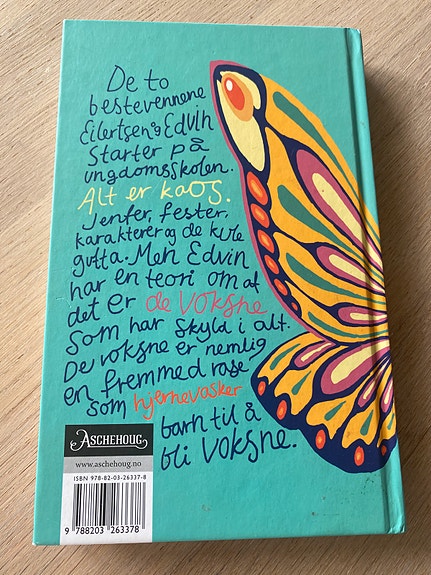 De to
bestevennene
Eilertsen og Edvin
starter på
ungdomsskolen.
Alt er kaos.
Jenter, fester,
karakterer og de kule
gutta. Men Edvin
har en teori om at
det er de voksne
som har skyld i alt.
De voksne er nemlig
en fremmed rase
som hjernevasker
barn til å
bli voksne.
ASCHEHOUG
www.aschehoug.no
ISBN 978-82-03-26337-8
9 788203 263378